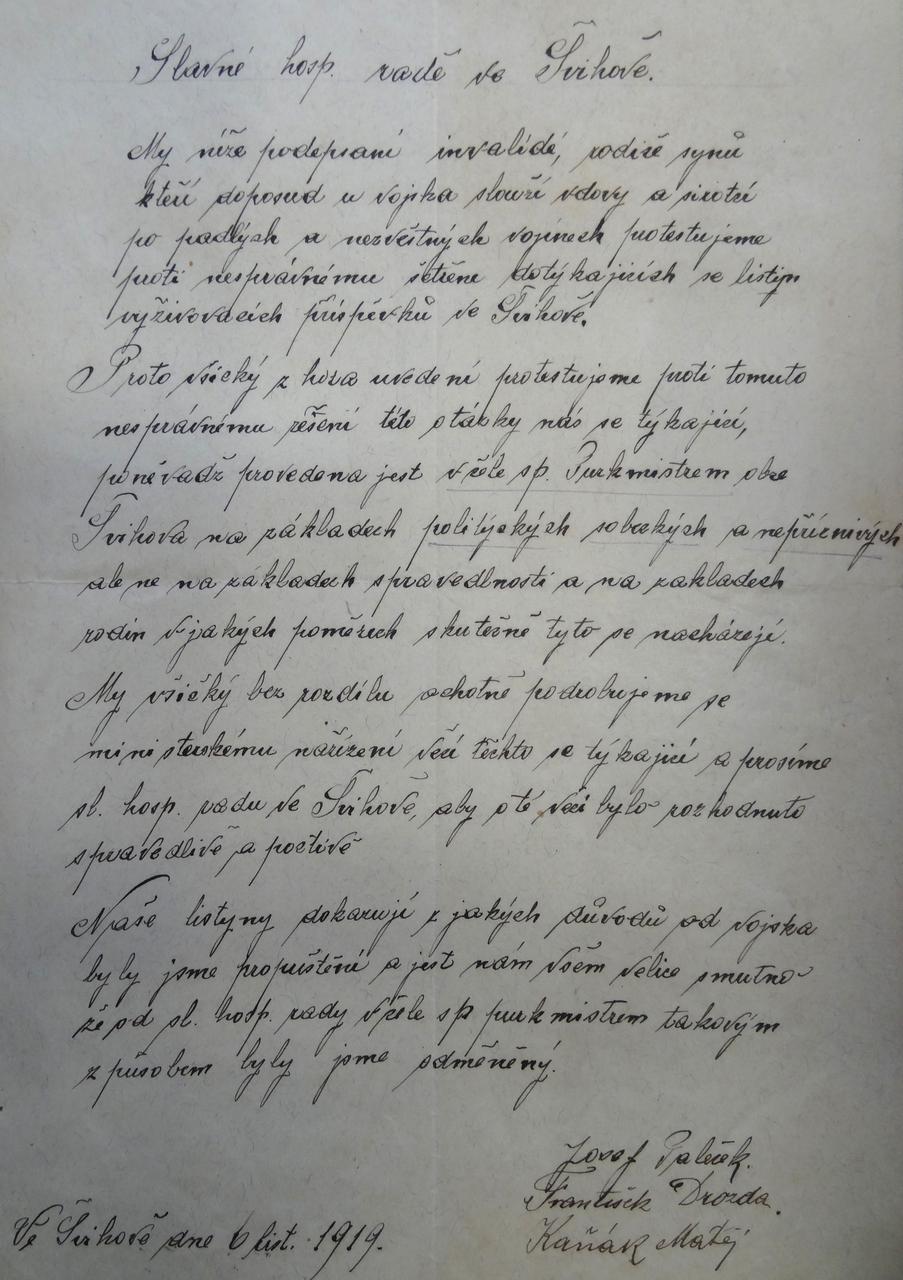 Slavné hosp. radě ve Švihově.
My níže podepsaní invalidé, rodiče synů
kteří doposud u vojska slouží vdovy a sirotci
po padlých a nezvěstných vojínech protestujeme
proti nesprávnému šetření dotýkajících se listin
vyživovacích příspěvků ve Švihově.
Proto všicky z hora uvedení protestujeme proti tomuto
nesprávnému řešení této otázky nás se týkající,
poněvadž provedena jest v čele sp. Purkmistrem obce
Švihova na základech polityckých sobeckých a nepříznivých
ale ne na základech spravedlnosti a na zakladech
rodin v jakých poměrech skutečně tyto se nacházejí.
My všičky bez rozdílu ochotně podrobujeme se
ministerskému nařízení věcí těchto se týkající a prosíme
sl. hosp. radu ve Švihově, aby o té věci bylo rozhodnuto
spravedlivě a poctivě
Naše listyny dokazují z jakých důvodů od vojska
byly jsme propuštění a jest nám všem velice smutno
že od sl. hosp. rady v čele sp purkmistrem takovým
způsobem byly jsme odměněný.
Josef Paleček.
František Drozda.
Ve Švihově dne 6 list. 1919.
Kaňák Matěj